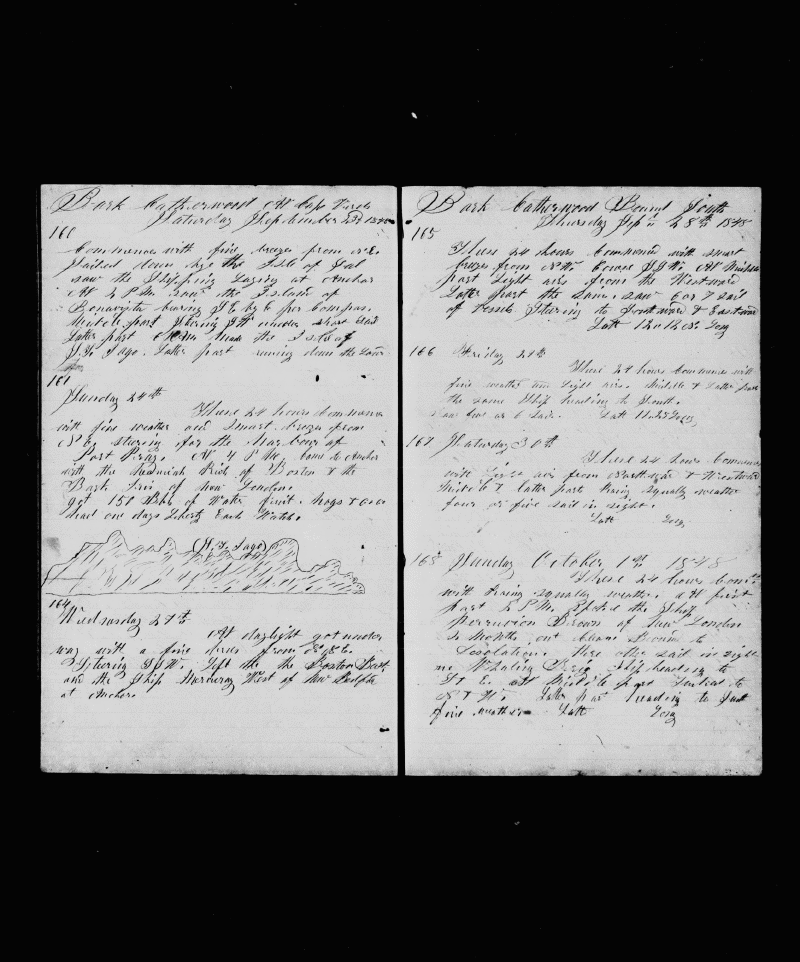 Bark Catherwood At Cape Verds
Saturday September 23d 1848
160
Commences with fine breezes from NE.
Sailed down by the Isle of Sal
saw the Shipping Laying at Anchor
At 2 P M. saw the Island of
Bonavista bearing SE by E per Compas.
Middle part Stering SW under short Sail
Latter part made the Isle of
St Iago. Latter part runing down the Land
161
Sunday 24th
These 24 hours Commences
with fine weather and smart breezes from
N E, stering for the Harbour of
Port Praya. At 4 P M. Come to Anchor
with the of Boston & the
Bark of New London.
got 150 Bbls of Water fruit. hogs &
had one days Liberty Each Watch.
(St Iago)
164
Wednesday 27th
At daylight got under
way with a fine breese from NE.
Stering SSW. left the the Boston Bark
and the Ship West of New
at Anchor.
Bark Catherwood Bound South
Thursday Sep 28th 1848
165
These 24 hours Commenced with smart
breezes from NW. Course SSW. At Middle
part Light airs from the Westward
Latter part the same. saw 6 or 7 sail
of Vessels Stering to Southward & Eastward
Latt 12 12 Long
166 Friday 29th
These 24 hours Commences with
fine weather and Light airs. Middle & Latter part
the same Ship heading to South.
saw five or 6 Sail. Latt 11.25 Long
167 Saturday 30th
These 24 hours Commences
with Light airs from Northward & Westward
Middle & latter part having squaly weather
four or five sail in sight.
Latt Long
168 Sunday October 1st 1848
These 24 hours
with having squaly weather. At first
part 2 P M. the Ship
Peruvian Brown of New London
months out Bound to
Desolation. three other sail in sight
one Whaling Brig Ship heading to
At Middle part to
Latter part heading to
fine weather Latt Long